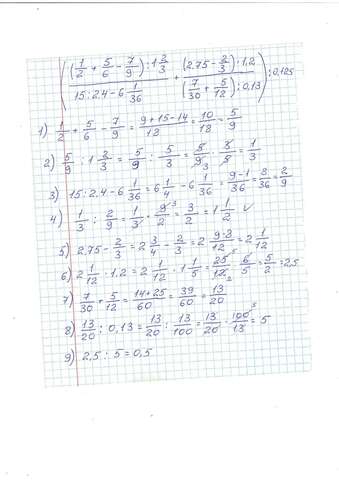 (((1/2 + 5/6 − 7/9) : 1 2/3) / (15 : 2,4 − 6 1/36) + ((2,75 − 2/3) · 1,2) / ((7/30 + 5/12) : 0,13)) : 0,125
1) 1/2 + 5/6 − 7/9 = (9+15−14)/18 = 10/18 = 5/9
2) 5/9 : 1 2/3 = 5/9 : 5/3 = 5/9 · 3/5 = 1/3
3) 15 : 2,4 − 6 1/36 = 6 1/4 − 6 1/36 = (9−1)/36 = 8/36 = 2/9
4) 1/3 : 2/9 = 1/3 · 9/2 = 3/2 = 1 1/2 ✓
5) 2,75 − 2/3 = 2 3/4 − 2/3 = 2 (9−8)/12 = 2 1/12
6) 2 1/12 · 1,2 = 2 1/12 · 1 1/5 = 25/12 · 6/5 = 5/2 = 2,5
7) 7/30 + 5/12 = (14+25)/60 = 39/60 = 13/20
8) 13/20 : 0,13 = 13/20 : 13/100 = 13/20 · 100/13 = 5
9) 2,5 : 5 = 0,5